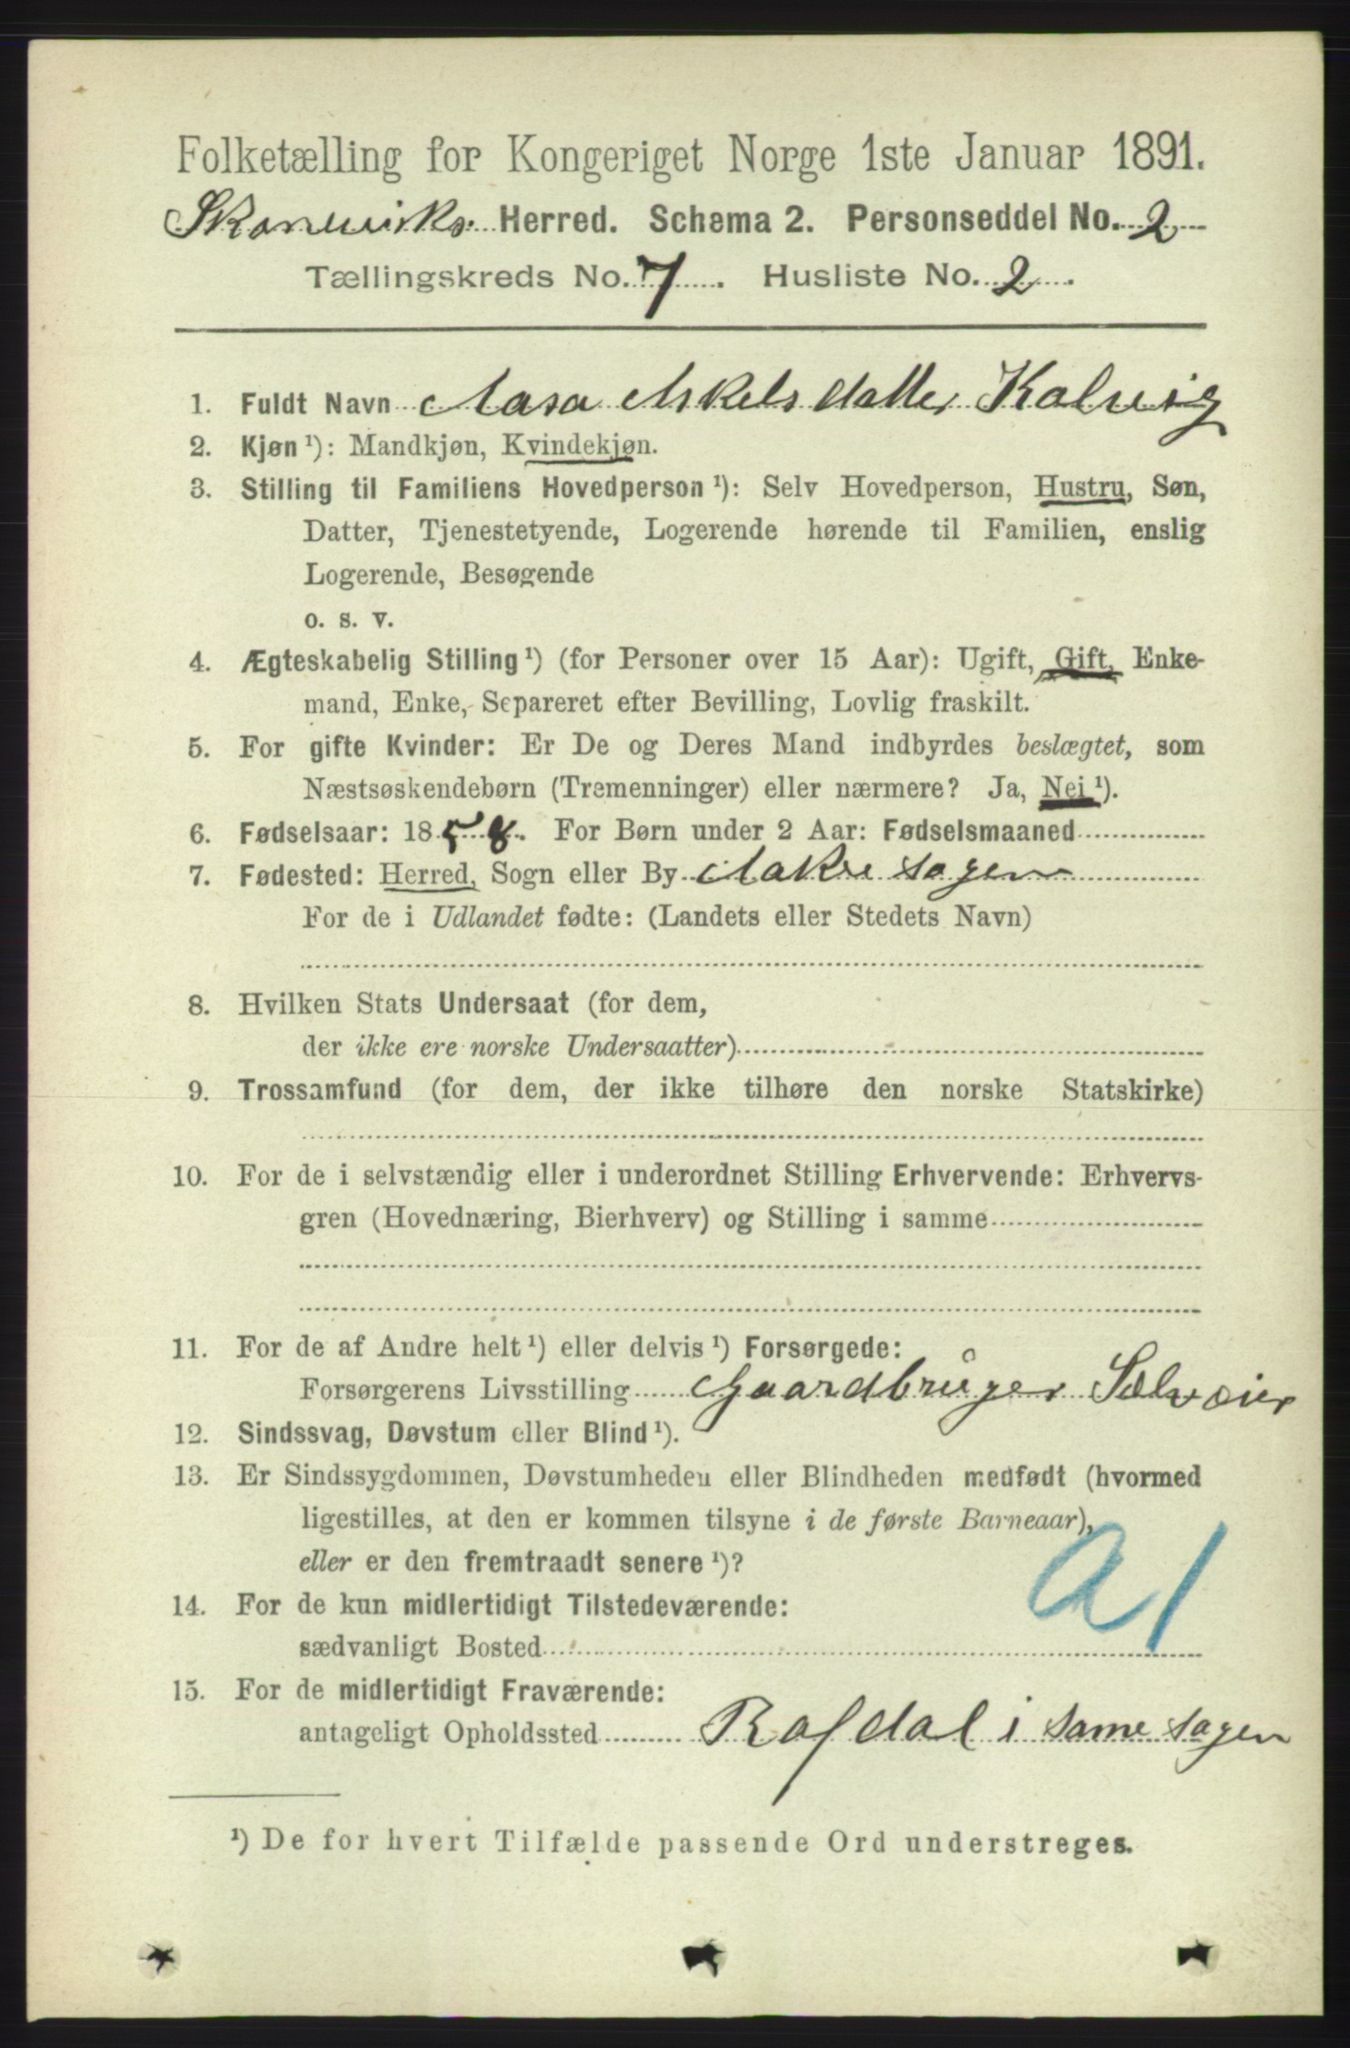 Folketælling for Kongeriget Norge 1ste Januar 1891.
Skonevirks Herred. Schema 2. Personseddel No. 2
Tællingskreds No. 7. Husliste No. 2.
1. Fuldt Navn Aasa Askelsdatter Kalvig
2. Kjøn ¹): Mandkjøn, Kvindekjøn.
3. Stilling til Familiens Hovedperson ¹): Selv Hovedperson, Hustru, Søn,
Datter, Tjenestetyende, Logerende hørende til Familien, enslig
Logerende, Besøgende
o. s. v.
4. Ægteskabelig Stilling ¹) (for Personer over 15 Aar): Ugift, Gift, Enke-
mand, Enke, Separeret efter Bevilling, Lovlig fraskilt.
5. For gifte Kvinder: Er De og Deres Mand indbyrdes beslægtet, som
Næstsøskendebørn (Tremenninger) eller nærmere? Ja, Nei ¹).
6. Fødselsaar: 1858. For Børn under 2 Aar: Fødselsmaaned
7. Fødested: Herred, Sogn eller By Aakre sogen
For de i Udlandet fødte: (Landets eller Stedets Navn)
8. Hvilken Stats Undersaat (for dem,
der ikke ere norske Undersaatter)
9. Trossamfund (for dem, der ikke tilhøre den norske Statskirke)
10. For de i selvstændig eller i underordnet Stilling Erhvervende: Erhvervs-
gren (Hovednæring, Bierhverv) og Stilling i samme
11. For de af Andre helt ¹) eller delvis ¹) Forsørgede:
Forsørgerens Livsstilling Gaardbruger Selveier
12. Sindssvag, Døvstum eller Blind ¹).
13. Er Sindssygdommen, Døvstumheden eller Blindheden medfødt (hvormed
ligestilles, at den er kommen tilsyne i de første Barneaar),
eller er den fremtraadt senere ¹)?
a1
14. For de kun midlertidigt Tilstedeværende:
sædvanligt Bosted
15. For de midlertidigt Fraværende:
antageligt Opholdssted Rafdal i same sogen
¹) De for hvert Tilfælde passende Ord understreges.